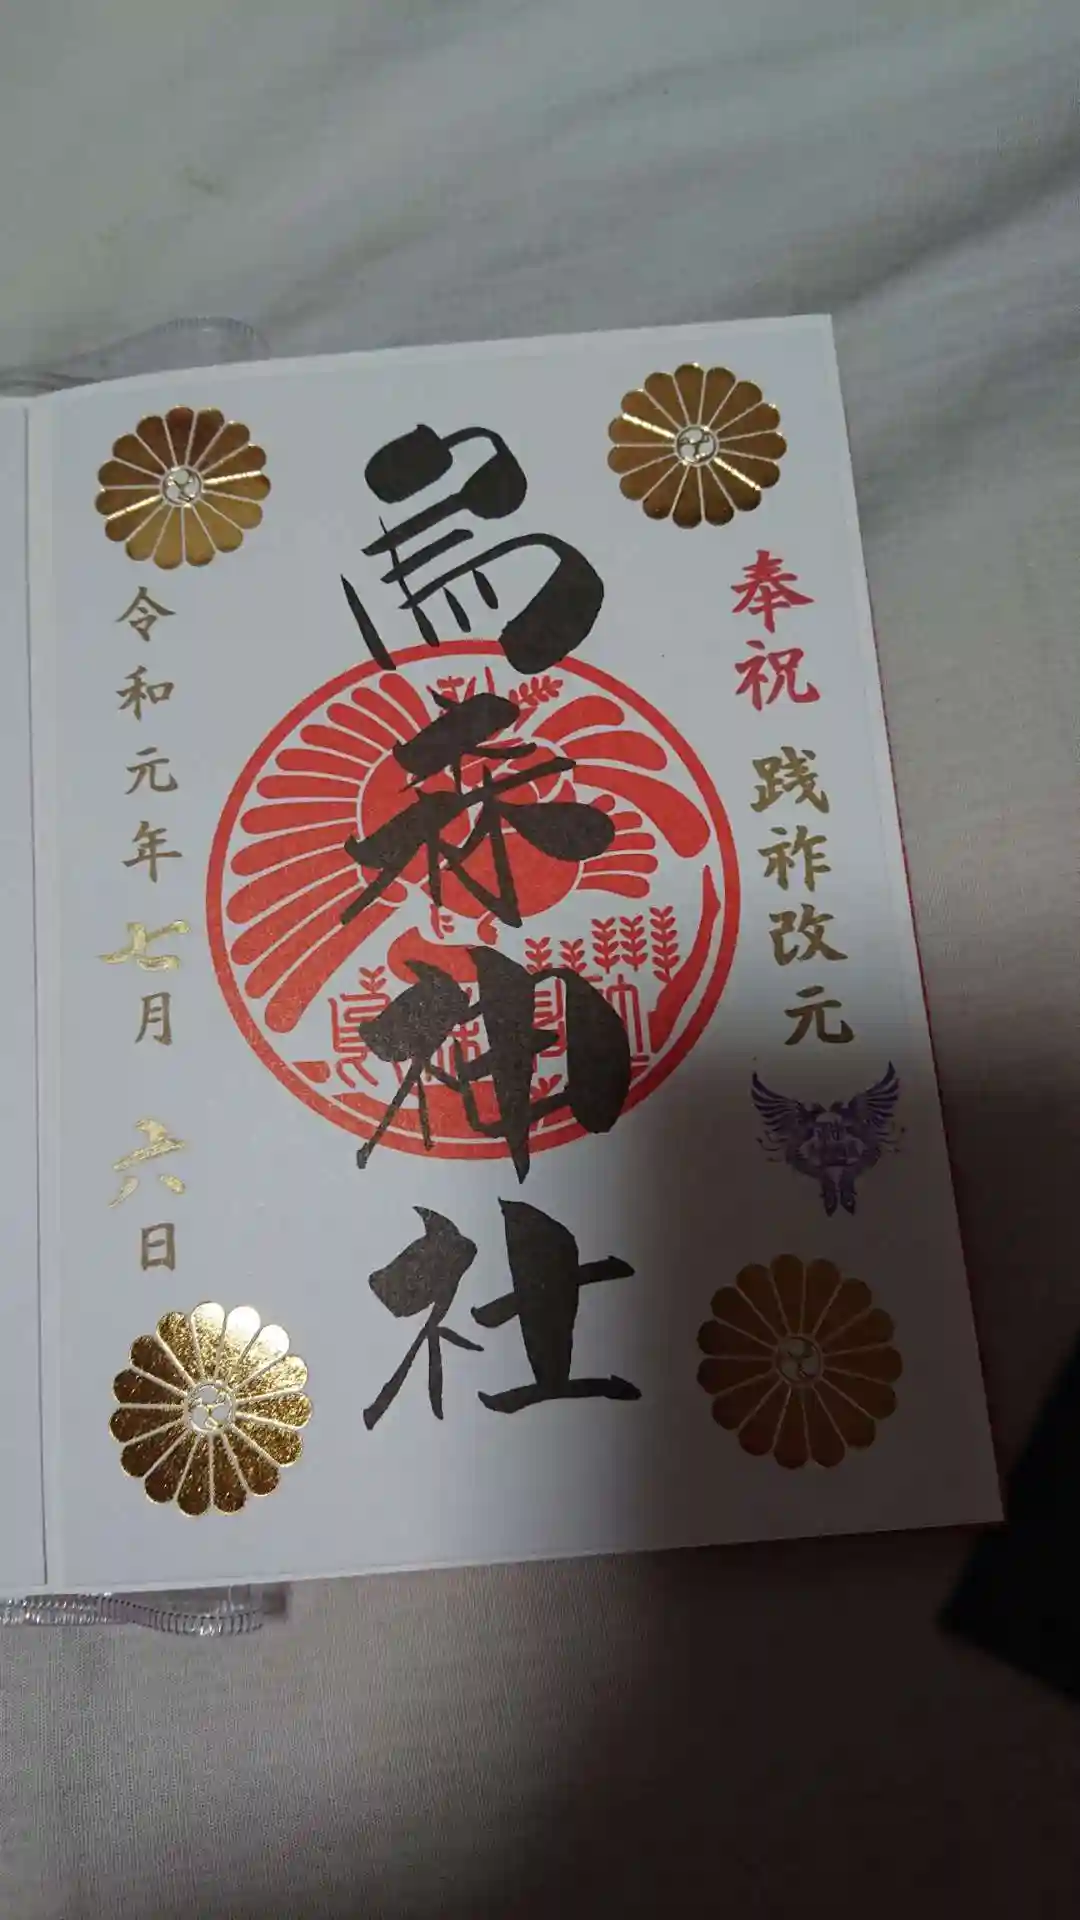 奉祝 践祚改元
烏森神社
令和元年七月六日